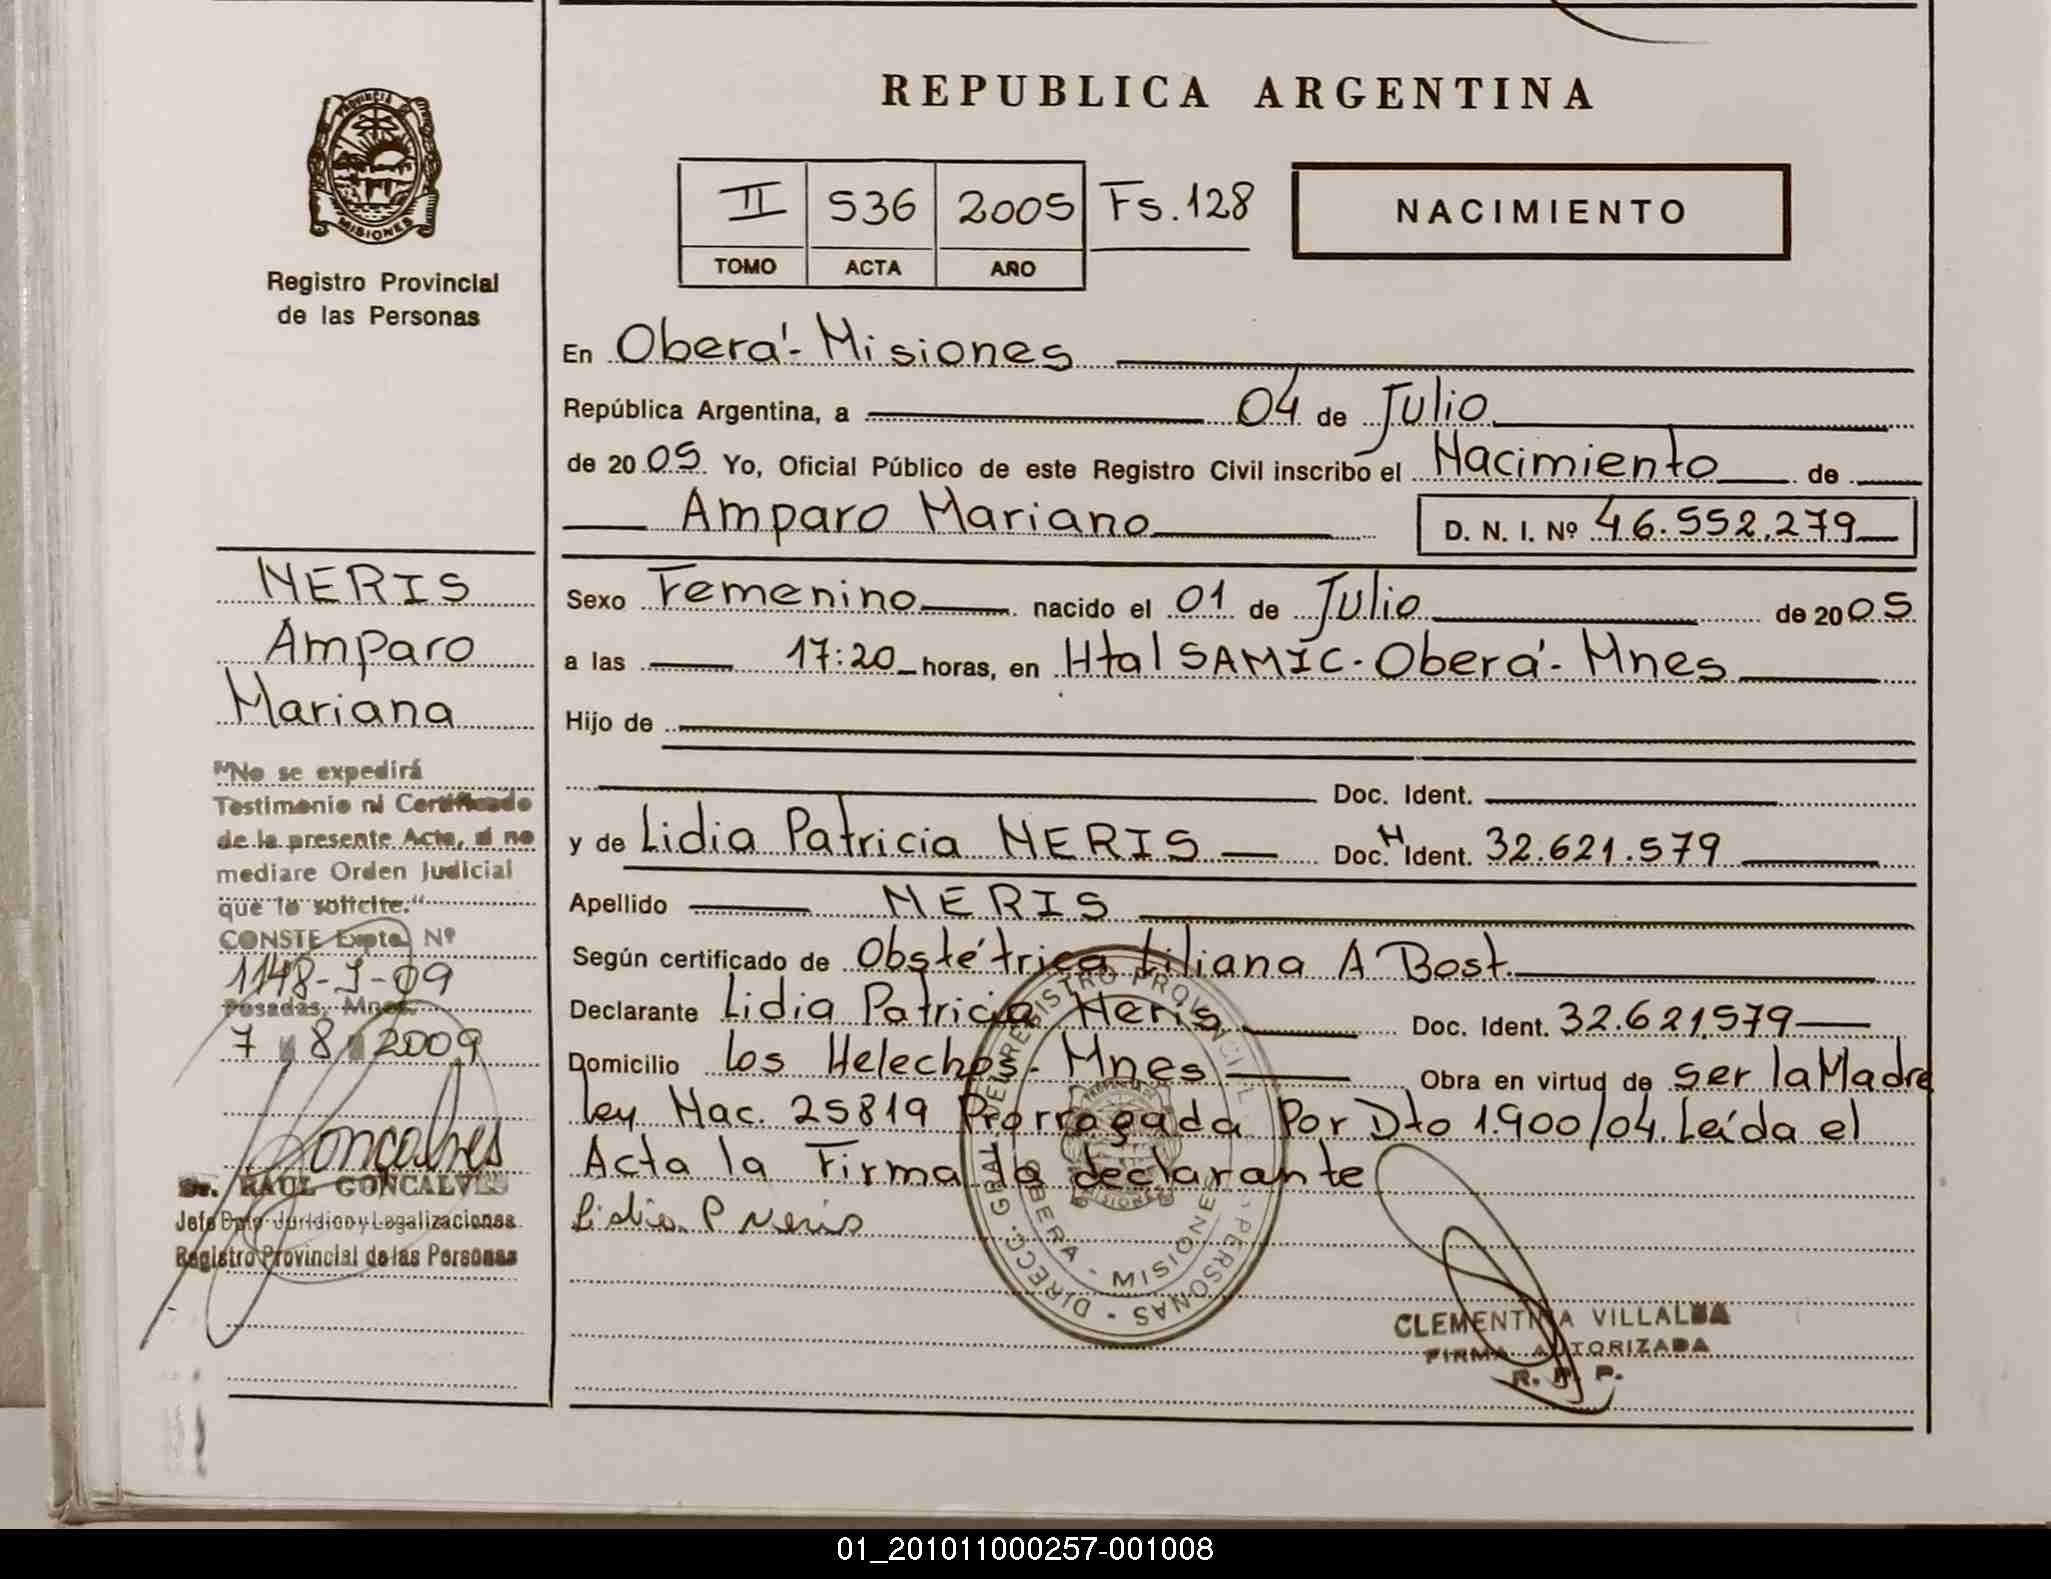 REPUBLICA ARGENTINA
PROVINCIA DE
MISIONES
Registro Provincial
de las Personas
II 536 2005 Fs.128
TOMO ACTA AÑO
NACIMIENTO
En Oberá - Misiones
República Argentina, a 04 de Julio
de 2005 Yo, Oficial Público de este Registro Civil inscribo el Nacimiento de
Amparo Mariano
D. N. I. Nº 46.552.279
Sexo Femenino nacido el 01 de Julio de 2005
a las 17:20 horas, en Htal SAMIC - Oberá - Mnes
Hijo de
Doc. Ident.
y de Lidia Patricia NERIS Doc. N Ident. 32.621.579
Apellido NERIS
Según certificado de Obstétrica Liliana A Bost.
Declarante Lidia Patricia Neris Doc. Ident. 32.621.579
Domicilio Los Helechos - Mnes Obra en virtud de ser la Madre
Ley Nac. 25819 Prorrogada Por Dto 1.900/04. Leída el
Acta la Firma la declarante
Lidia P Neris
NERIS
Amparo
Mariana
"No se expedirá
Testimonio ni Certificado
de la presente Acta, si no
mediare Orden Judicial
que lo solicite."
CONSTE Expte. Nº
1148-J-09
Posadas, Mnes.
7 8 2009
Goncalves
Dr. RAUL GONCALVES
Jefe Dpto. Jurídico y Legalizaciones
Registro Provincial de las Personas
DIRECC. GRAL. DEL REGISTRO PROVINCIAL PERSONAS
OBERA - MISIONES
CLEMENTINA VILLALBA
FIRMA AUTORIZADA
R. P. P.
01_201011000257-001008